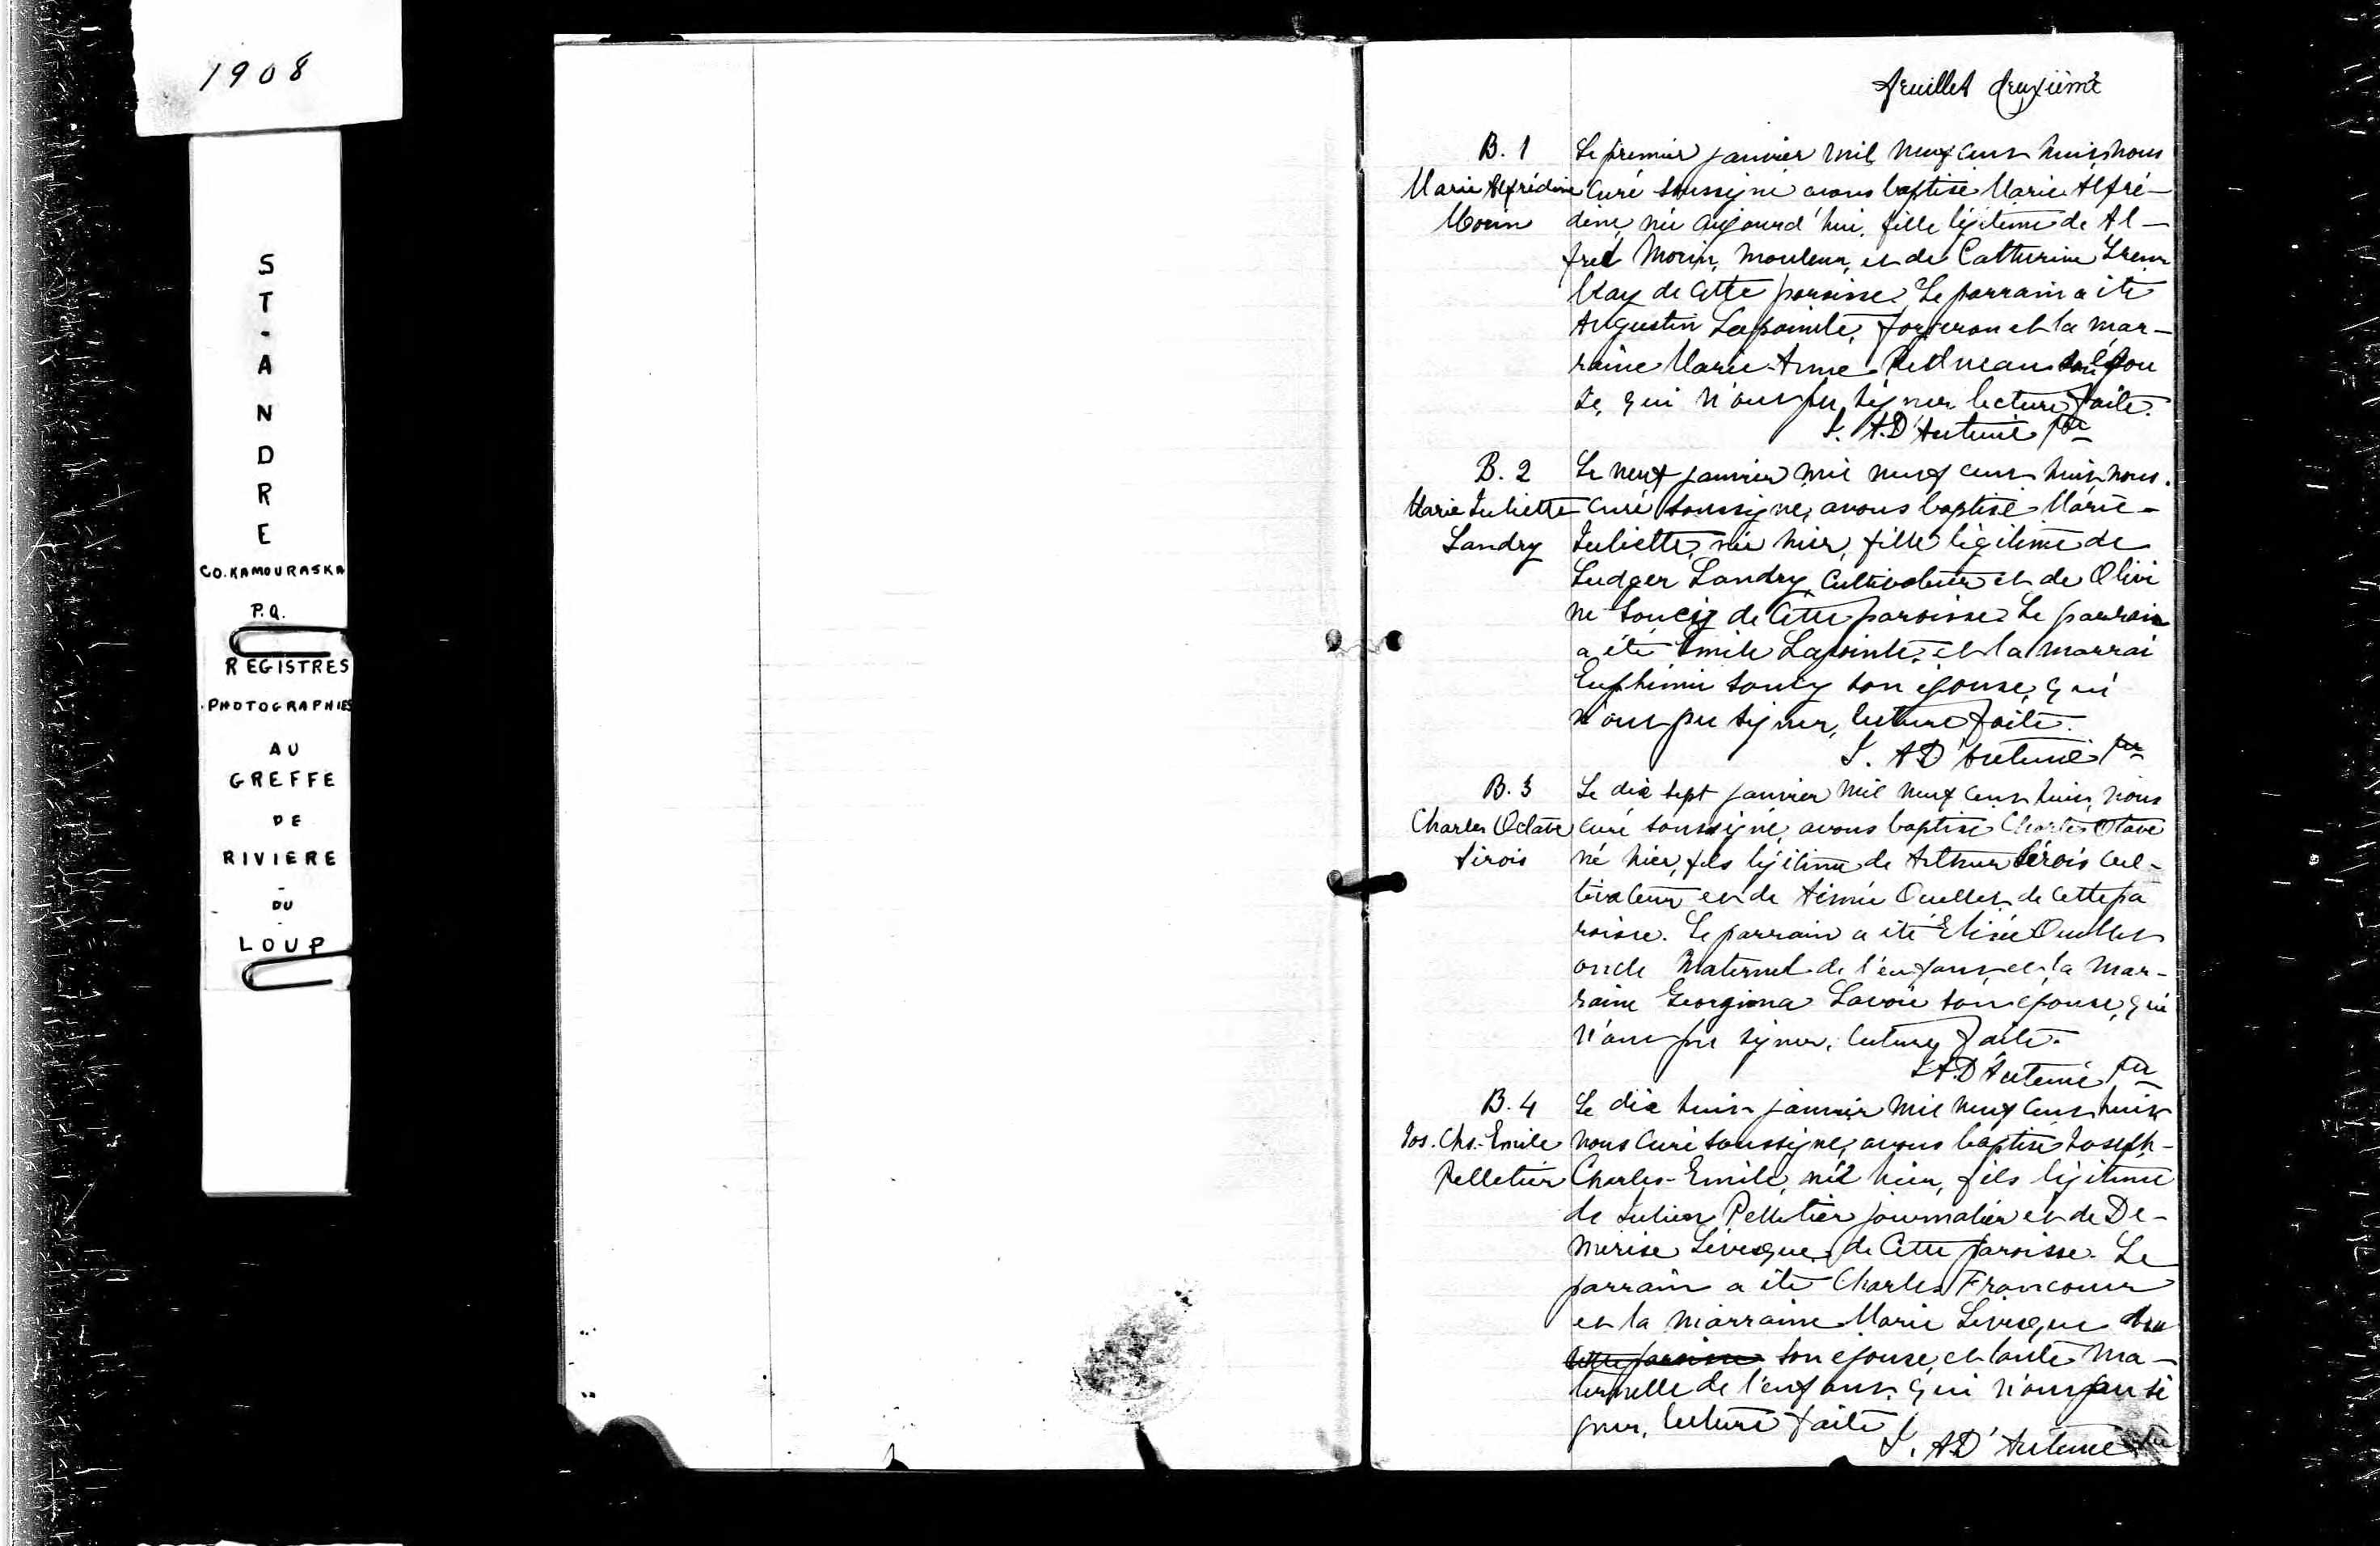 1908
ST-ANDRE
CO. KAMOURASKA
P.Q.
REGISTRES
PHOTOGRAPHIES
AU
GREFFE
DE
RIVIERE
-
DU
-
LOUP
feuillet deuxième
B. 1
Marie Alfrédine
Morin
Le premier janvier mil neuf cent huit, nous
curé soussigné avons baptisé Marie Alfré-
dine, née aujourd'hui, fille légitime de Al-
fred Morin, mouleur, et de Catherine Trem
blay de cette paroisse. Le parrain a été
Augustin Lapointe, forgeron et la mar-
raine Marie-Anne son épou
se, qui n'ont pu signer lecture faite.
A. D'Auteuil ptre
B. 2
Marie Juliette
Landry
Le neuf janvier mil neuf cent huit, nous
curé soussigné, avons baptisé Marie-
Juliette, née hier, fille légitime de
Ludger Landry, cultivateur et de Olivi
ne Soucy de cette paroisse. Le parrain
a été Emile Lapointe, et la marrai
Euphémie Soucy son épouse, qui
n'ont pu signer, lecture faite.
A D'Auteuil ptre
B. 3
Charles Octave
Sirois
Le dix sept janvier mil neuf cent huit, nous
curé soussigné, avons baptisé Charles Otave
né hier, fils légitime de Arthur Sirois cul-
tivateur et de Aimée Ouellet de cette pa
roisse. Le parrain a été Elisée Ouellet
oncle maternel de l'enfant et la mar-
raine Georgina Lavoie son épouse, qui
n'ont pu signer, lecture faite.
A.D'Auteuil ptre
B. 4
Jos. Chs.-Emile
Pelletier
Le dix huit janvier mil neuf cent huit
nous curé soussigné, avons baptisé Joseph-
Charles-Emile, né hier, fils légitime
de Julien Pelletier journalier et de De-
merise Lévesque, de cette paroisse. Le
parrain a été Charles Francoeur
et la marraine Marie Lévesque de
cette paroisse son épouse, et tante ma-
ternelle de l'enfant, qui n'ont pu si
gner, lecture faite
A.D'Auteuil ptre